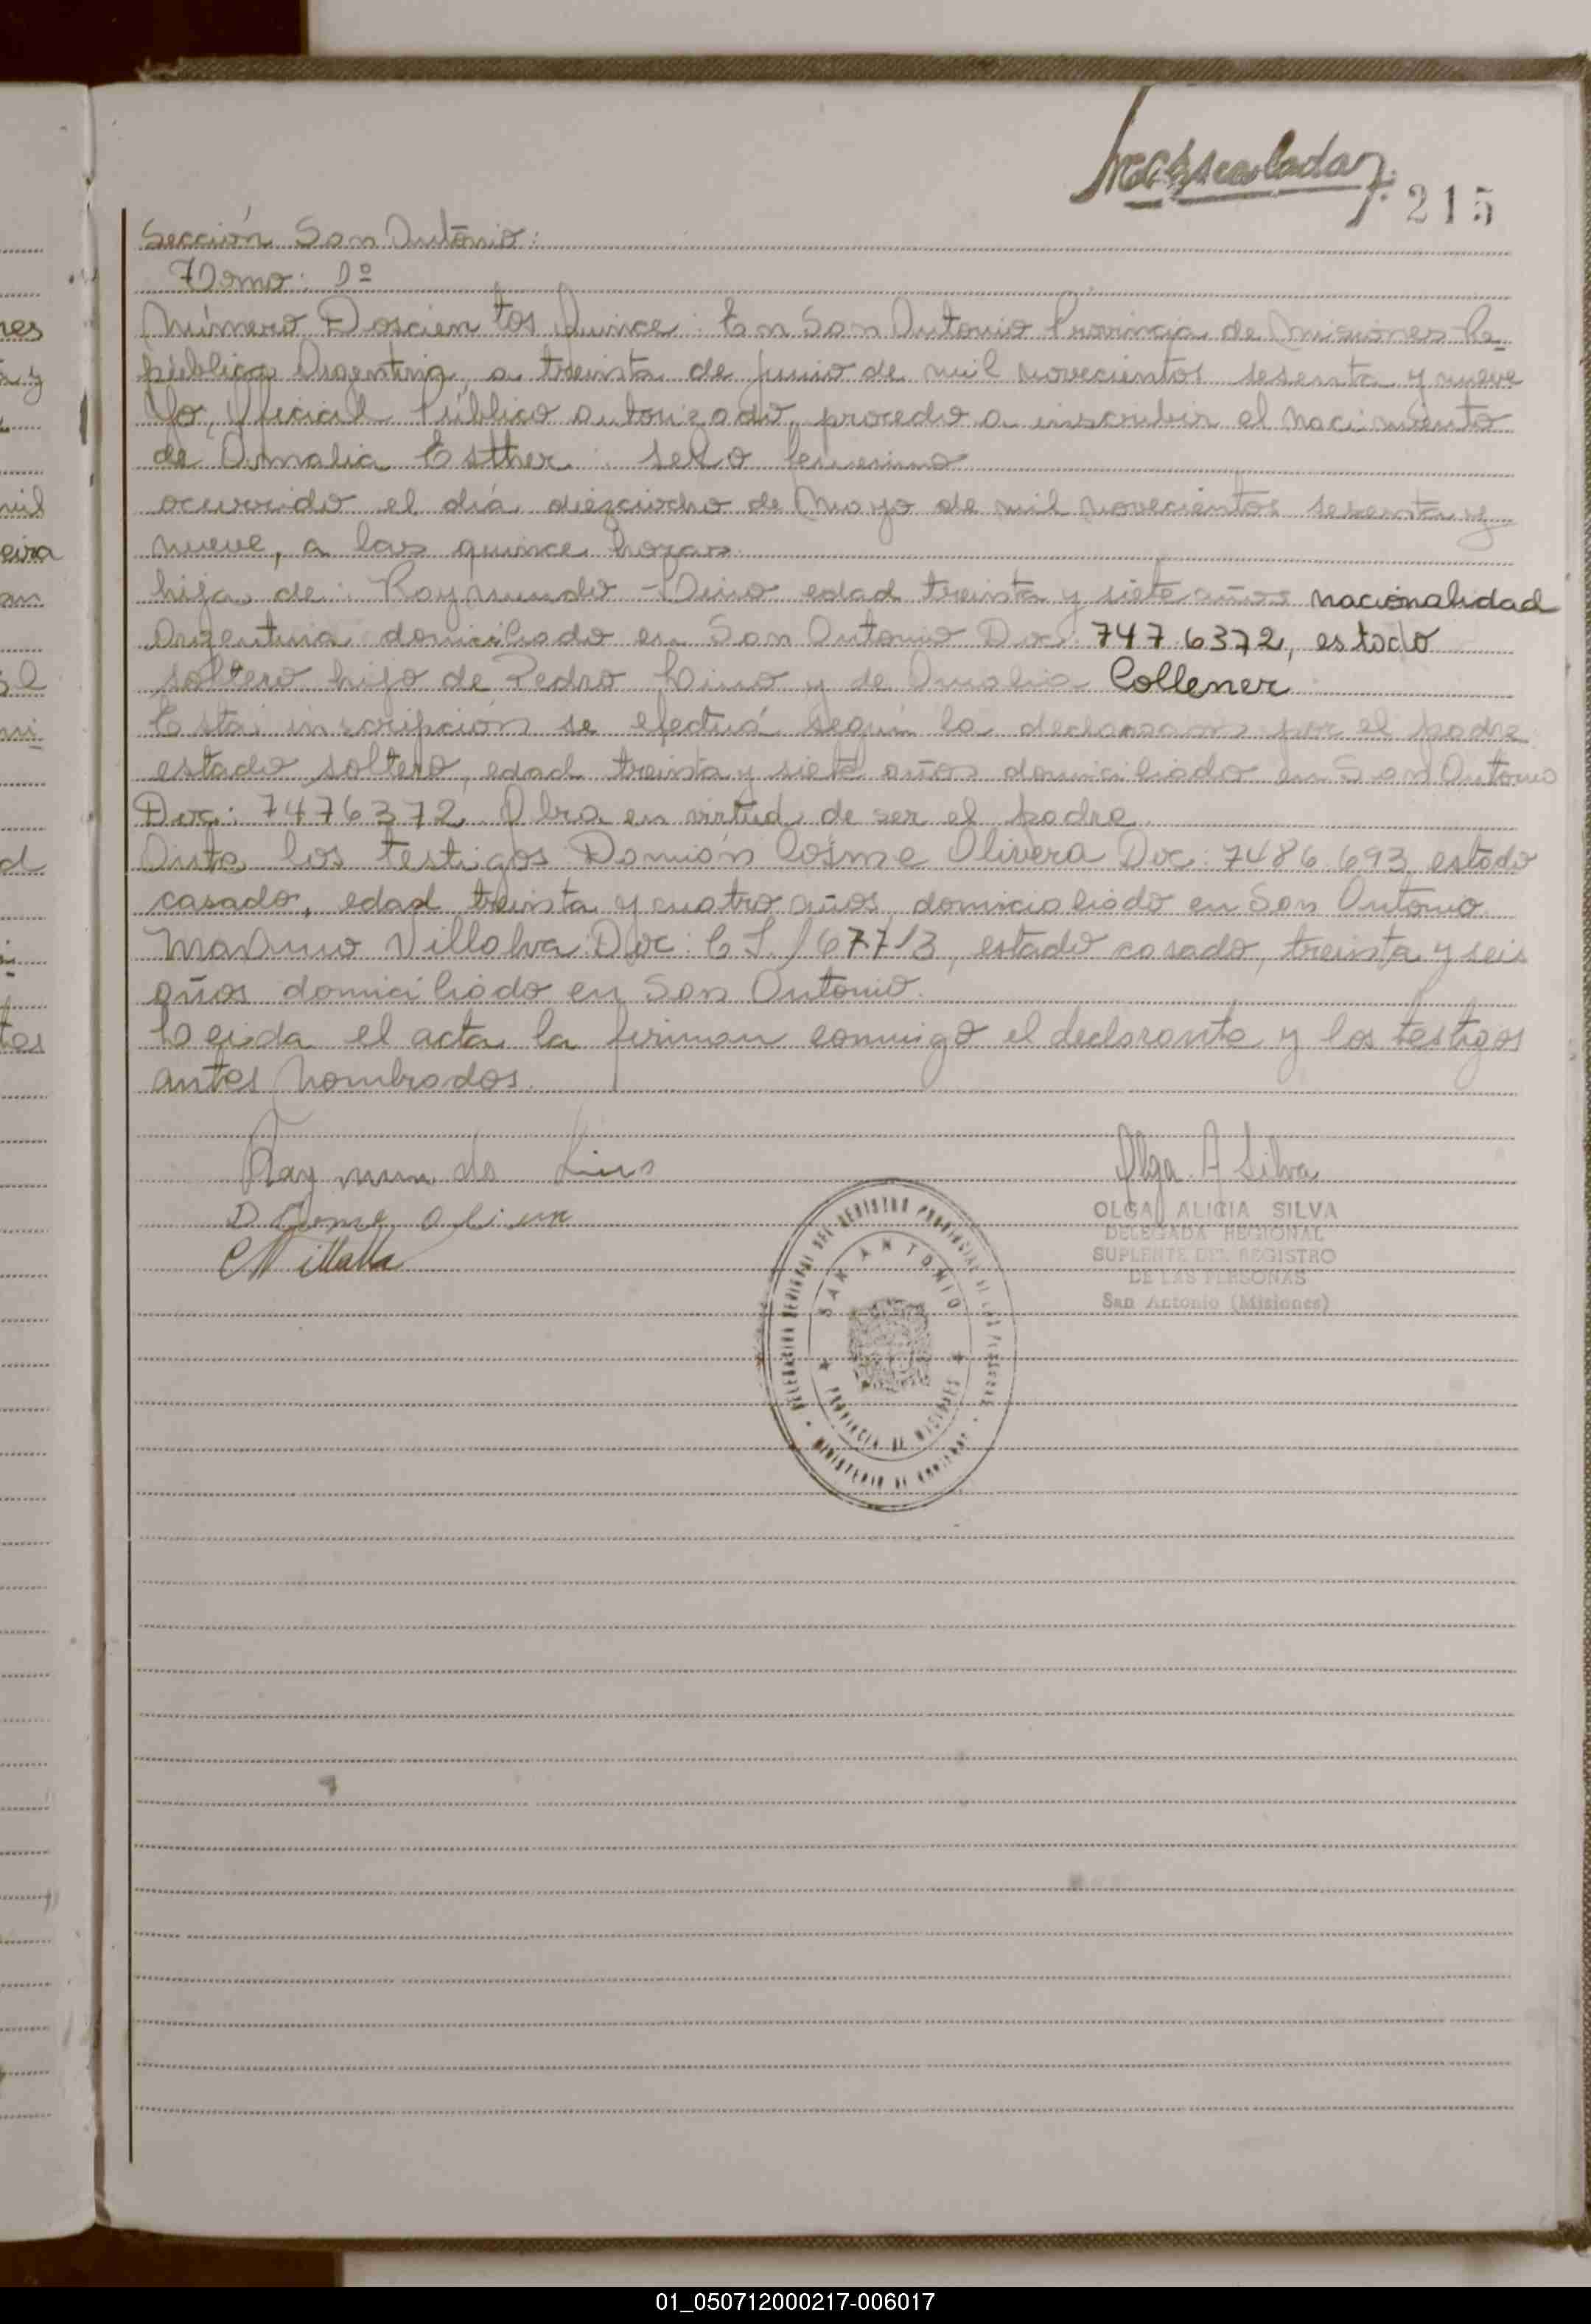 Inmatriculada
F. 215
Sección San Antonio:
Tomo: 1º
Número Doscientos Quince: En San Antonio Provincia de Misiones Re-
pública Argentina, a treinta de Junio de mil novecientos sesenta y nueve
Yo, Oficial Público autorizado, procedo a inscribir el nacimiento
de Amalia Esther. sexo femenino
ocurrido el día dieziocho de Mayo de mil novecientos sesenta y
nueve, a las quince horas.
hija de: Raymundo Lino edad treinta y siete años nacionalidad
Argentina domiciliado en San Antonio Doc: 747 6372, estado
soltero hijo de Pedro Lino y de Amalia Collener
Esta inscripción se efectuá según la por el padre
estado soltero, edad treinta y siete años domiciliado en San Antonio
Doc: 7476372. Obra en virtud de ser el padre.
Ante los testigos Damián Cosme Olivera Doc: 7486.693, estado
casado, edad treinta y cuatro años, domiciliado en San Antonio
Maximo Villalva Doc: 67713, estado casado, treinta y seis
años domiciliado en San Antonio.
Leida el acta la firman conmigo el declarante y los testigos
antes nombrados.
Raymundo Lino
Olga A Silva
D Cosme olivera
C Villalba
OLGA ALICIA SILVA
DELEGADA REGIONAL
SUPLENTE DEL REGISTRO
DE LAS PERSONAS
San Antonio (Misiones)
DELEGACION REGIONAL DEL REGISTRO PROVINCIAL DE LAS PERSONAS
SAN ANTONIO
PROVINCIA DE MISIONES
MINISTERIO DE GOBIERNO
01_050712000217-006017